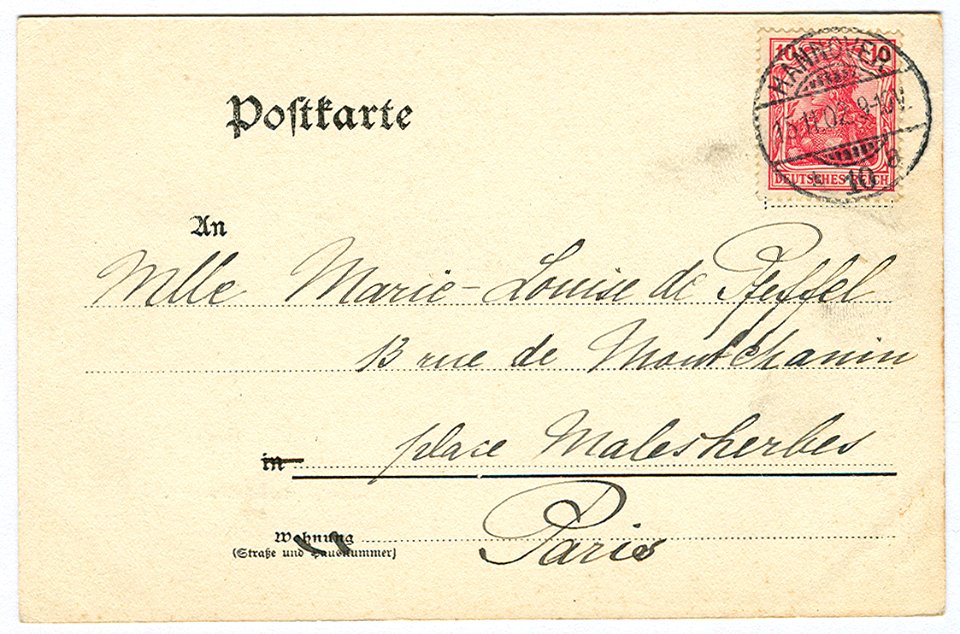 Poſtkarte
10 10
HANNOVER
15.11.02. 9-10V.
10 a
DEUTSCHES REICH
An
Mlle Marie-Louise de Pfeffel
13 rue de Montchanin
in place Malesherbes
Wohnung Paris
(Straße und Hausnummer)